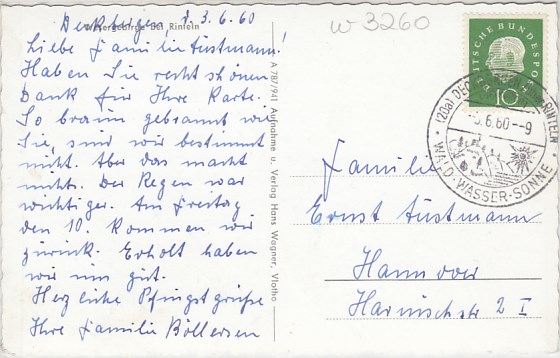 Deckbergen, d. 3.6.60
Wesergebirge bei Rinteln
Liebe Familie Tüstmann!
Haben Sie recht schönen
Dank für Ihre Karte.
So braun gebrannt wie
Sie, sind wir bestimmt
nicht. Aber das macht
nichts. Der Regen war
wichtiger. Am Freitag
den 10. kommen wir
zurück. Erholt haben
wir uns gut.
Herzliche Pfingstgrüße
Ihre Familie Böllersen
A 787/941 Aufnahme u. Verlag Hans Wagner, Vlotho
w 3260
DEUTSCHE BUNDESPOST
10
(20a) DECKBERGEN RINTELN
6.60--9
WALD-WASSER-SONNE
Familie
Ernst Tüstmann
Hannover
Harnischstr 2 I